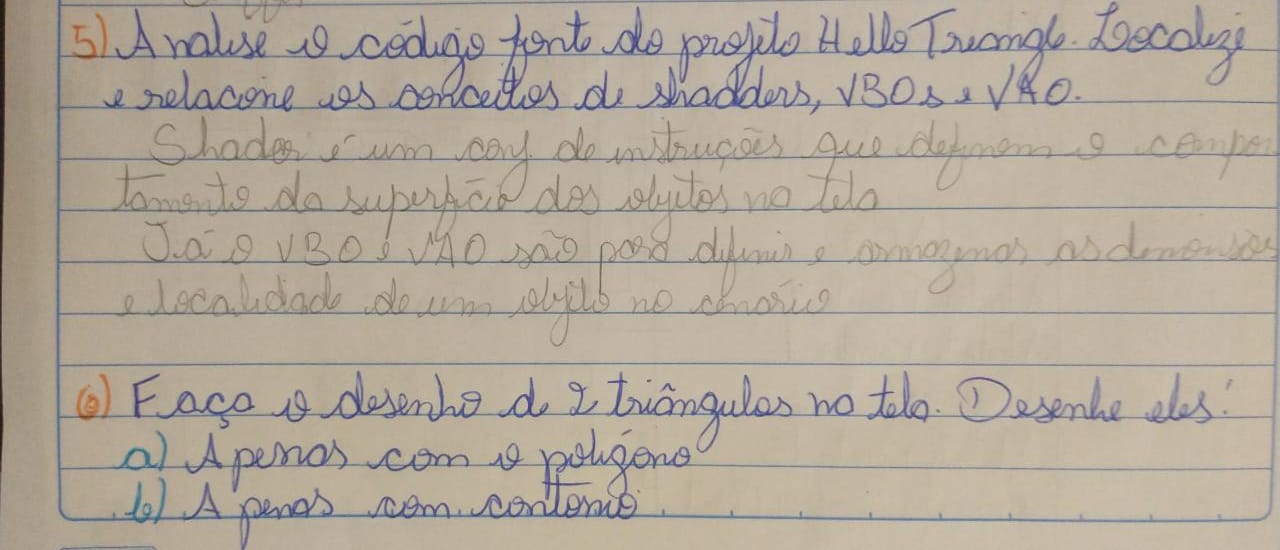 5) Analise o código fonte do projeto Hello Triangle. Localize
e relacione os conceitos de shadders, VBOs e VAO.
Shader é um conj. de instruções que definem o compor
tamento da superfície dos objetos na tela
Já o VBO e VAO são para definir e armazenar as dimensões
e localidade de um objeto no cenário
6) Faça o desenho de 2 triângulos na tela. Desenhe eles:
a) Apenas com o polígono
b) Apenas com contorno